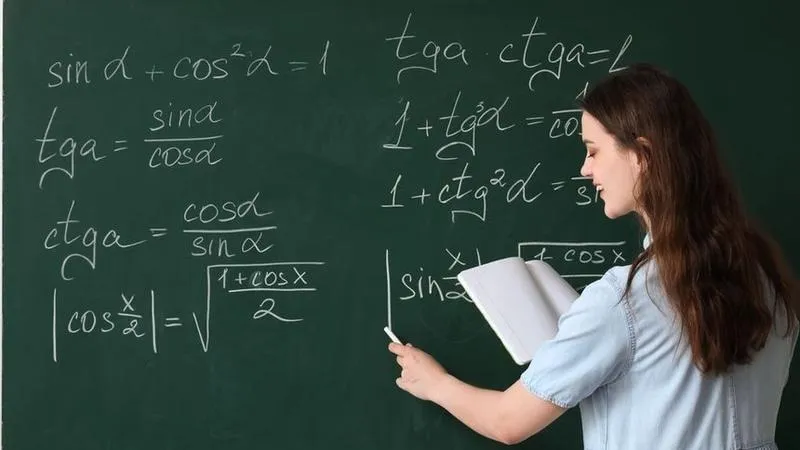 sin α + cos² α = 1
tga = sinα / cosα
ctga = cosα / sinα
|cos x/2| = √((1+cos x)/2)
tga · ctga = 1
1 + tg³α =
1 + ctg²α =
|sin x/2
cos x